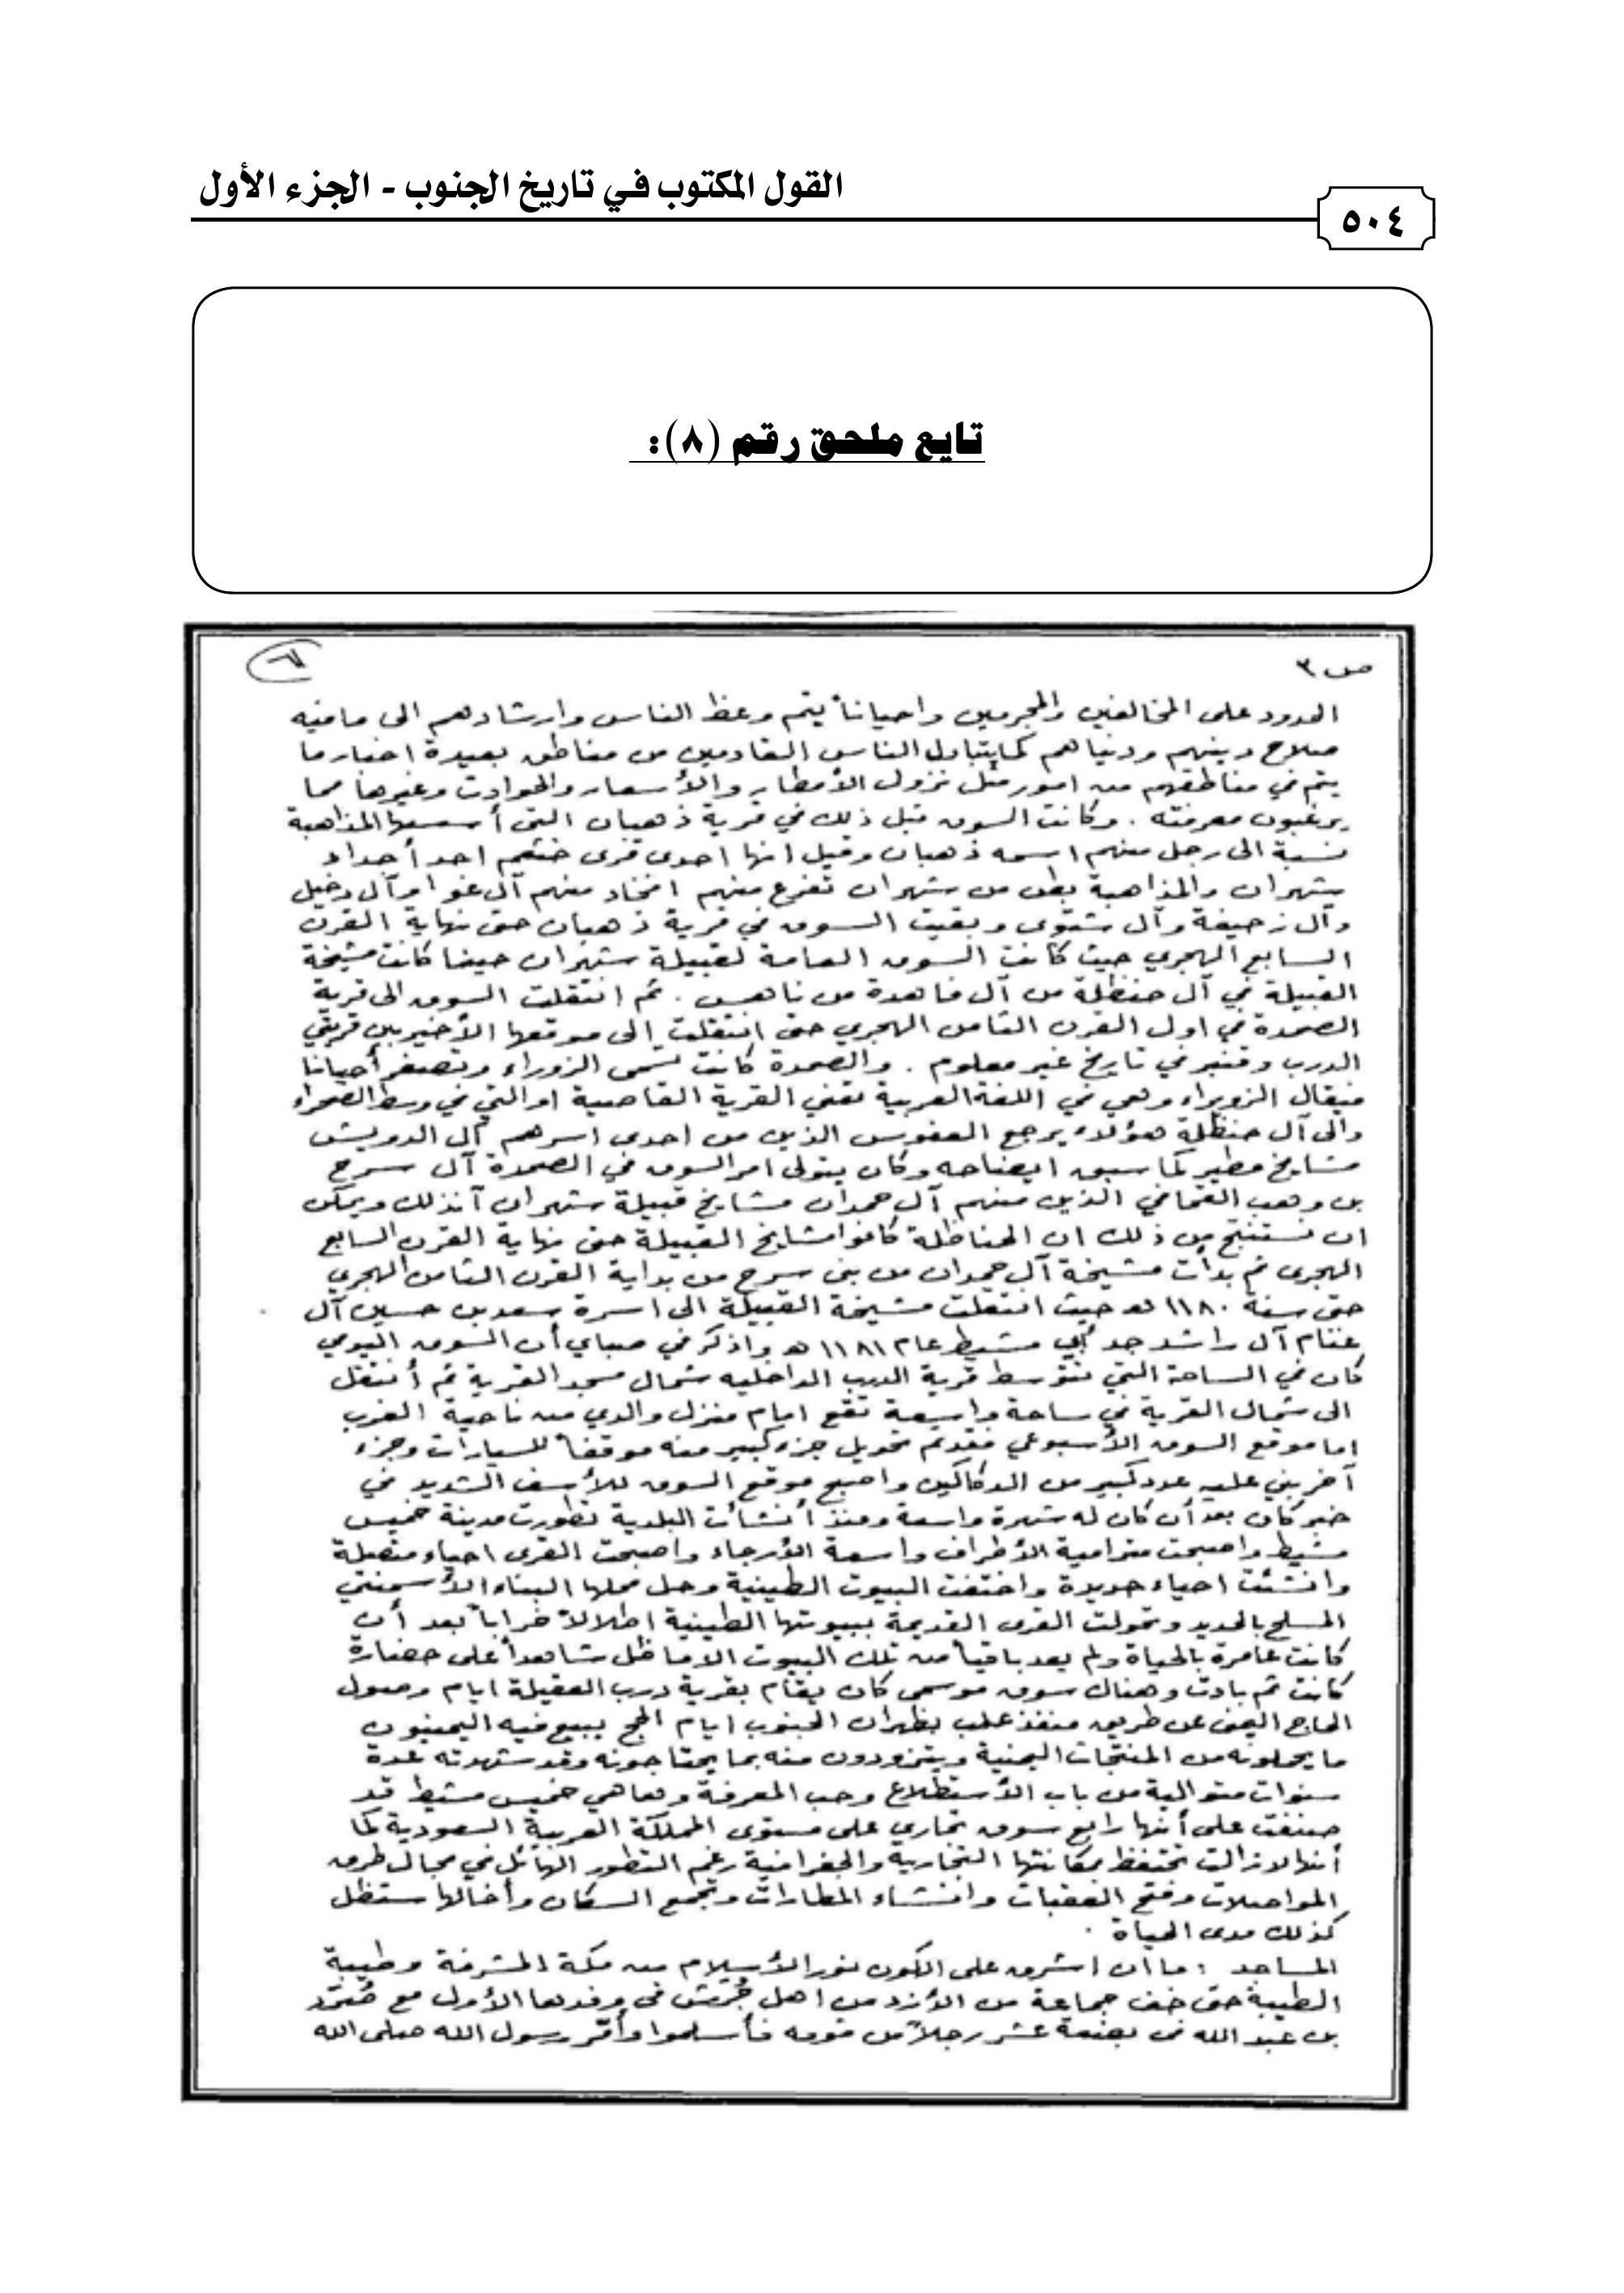 القول المكتوب في تاريخ الجنوب - الجزء الأول
٥٠٤
تابع ملحق رقم (٨):
ص ٣
الحدود على المخالفين والمجرمين واحياناً يتم وعظ الناس وارشادهم الى مافيه
صلاح دينهم ودنياهم كما يتبادل الناس القادمين من مناطق بعيدة اخبار ما
يتم في مناطقهم من امور مثل نزول الأمطار والأسعار والحوادث وغيرها مما
يرغبون معرفته . وكانت السوق قبل ذلك في قرية ذهبان التي أسسها المذاهبة
نسبة الى رجل منهم اسمه ذهبان وقيل انها احدى قرى خثعم احد أجداد
شهران والمذاهبة بطن من شهران تفرع منهم افخاذ منهم آل غوا وآل دخيل
وآل زحيفة وآل شتوى وبقيت السوق في قرية ذهبان حتى نهاية القرن
السابع الهجري حيث كانت السوق العامة لقبيلة شهران حينما كانت مشيخة
القبيلة في آل حنظلة من آل فاهدة من ناهس . ثم انتقلت السوق الى قرية
الصمدة في اول القرن الثامن الهجري حتى انتقلت الى موقعها الأخير بين قريتي
الدرب وقنبر في تاريخ غير معلوم . والصمدة كانت تسمى الزوراء وتصغر أحيانا
فيقال الزويراء وهي في اللغة العربية تعني القرية القاصية او التي في وسط الصحراء
والى آل حنظلة هؤلاء يرجع العفوس الذين من احدى اسرهم آل الدويش
مشايخ مطير كما سبق ايضاحه وكان يتولى امر السوق في الصمدة آل سرح
بن وهب القحافي الذين منهم آل حمدان مشايخ قبيلة شهران آنذلك ويمكن
ان نستنتج من ذلك ان الحناظلة كانوا مشايخ القبيلة حتى نهاية القرن السابع
الهجري ثم بدأت مشيخة آل حمدان من بني سرح من بداية القرن الثامن الهجري
حتى سنة ١١٨٠ هـ حيث انتقلت مشيخة القبيلة الى اسرة سعد بن حسين آل
غنام آل راشد جد أبي مشيط عام ١١٨١ هـ واذكر في صباي أن السوق اليومي
كان في الساحة التي تتوسط قرية الدرب الداخليه شمال مسجد القرية ثم أنتقل
الى شمال القرية في ساحة واسعة تقع امام منزل والدي من ناحية الغرب
اما موقع السوق الأسبوعي فقد تم تحويل جزء كبير منه موقفاً للسيارات وجزء
آخر بني عليه عدد كبير من الدكاكين واصبح موقع السوق للأسف الشديد في
خبر كان بعد أن كان له شهرة واسعة ومنذ أنشأت البلدية تطورت مدينة خميس
مشيط واصبحت مترامية الأطراف واسعة الأرجاء واصبحت القرى احياء متصلة
وانشئت احياء جديدة واختفت البيوت الطينية وحل محلها البناء الأسمنتي
المسلح بالحديد وتحولت القرى القديمة ببيوتها الطينية اطلالاً خراباً بعد أن
كانت عامرة بالحياة ولم يعد باقياً من تلك البيوت الا ما ظل شاهداً على حضارة
كانت ثم بادت وهناك سوق موسمي كان يقام بقرية درب العقيلة ايام وصول
الحاج اليمني عن طريق منفذ علب بظهران الجنوب ايام الحج يبيع فيه اليمنيون
ما يحملونه من المنتجات اليمنية ويتزودون منه بما يحتاجونه وقد شهدته عدة
سنوات متوالية من باب الأستطلاع وحب المعرفة وها هي خميس مشيط قد
صنفت على أنها رابع سوق تجاري على مستوى المملكة العربية السعودية كما
أنها لا تزالت تحتفظ بمكانتها التجارية والجغرافية رغم التطور الهائل في مجال طرق
المواصلات وفتح العقبات وانشاء المطارات وتجمع السكان وأخالها ستظل
كذلك مدى الحياة .
المساجد : ما ان اشرق على الكون نور الأسلام من مكة المشرفة وطيبة
الطيبة حتى خف جماعة من الأزد من اهل جُرش في وفدها الأول مع صُرَد
بن عبد الله في بضعة عشر رجلاً من قومه فأسلموا وأمّر رسول الله صلى الله